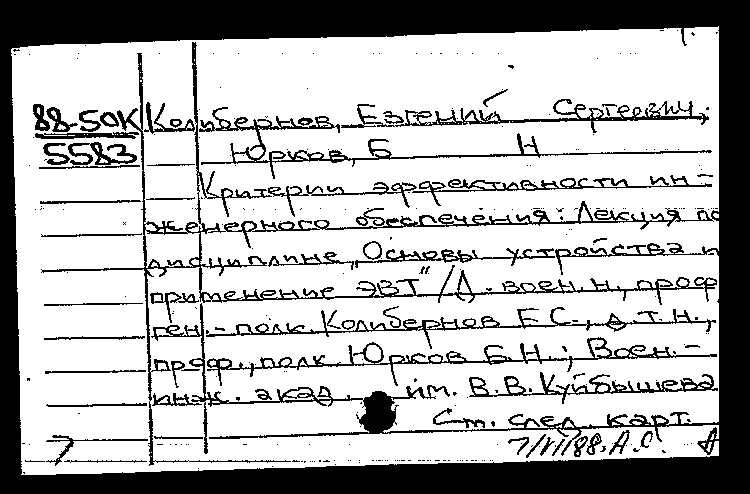 88-50К Колибернов, Евгений Сергеевич;
5583 Юрков, Б Н
Критерии эффективности ин-
женерного обеспечения: Лекция по
дисциплине „Основы устройства и
применение ЭВТ" / Д. воен. н., проф
ген.-полк. Колибернов Е.С., д.т.н.,
проф., полк. Юрков Б.Н.; Воен.-
инж. акад. им. В.В. Куйбышева
См. след. карт.
7 7/VI/88, А.С. А